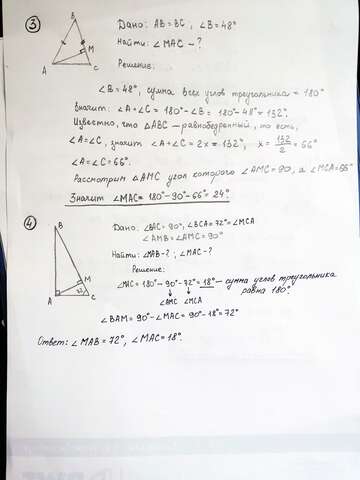 3
Дано: AB=BC, ∠B=48°
Найти: ∠MAC-?
Решение:
B
M
A
C
∠B=48°, сумма всех углов треугольника = 180°
Значит: ∠A+∠C = 180°-∠B = 180°-48°=132°.
Известно, что △ABC - равнобедренный, то есть,
∠A=∠C, значит ∠A+∠C=2x=132°, x=132/2=66°
∠A=∠C=66°.
Рассмотрим △AMC угол которого ∠AMC=90, а ∠MCA=66°
Значит ∠MAC=180°-90°-66°=24°.
4
Дано: ∠BAC=90°, ∠BCA=72°=∠MCA
∠AMB=∠AMC=90°
Найти: ∠MAB-?, ∠MAC-?
Решение:
B
M
72
A
C
∠MAC=180°-90°-72°=18° - сумма углов треугольника
равна 180°.
∠AMC ∠MCA
∠BAM=90°-∠MAC=90°-18°=72°
Ответ: ∠MAB=72°, ∠MAC=18°.